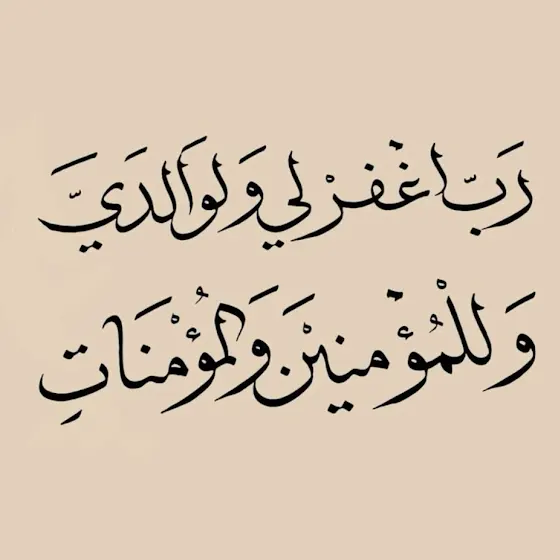 رَبِّ اغْفِرْ لِي وَلِوَالِدَيَّ
وَلِلْمُؤْمِنِيْنَ وَالْمُؤْمِنَاتِ